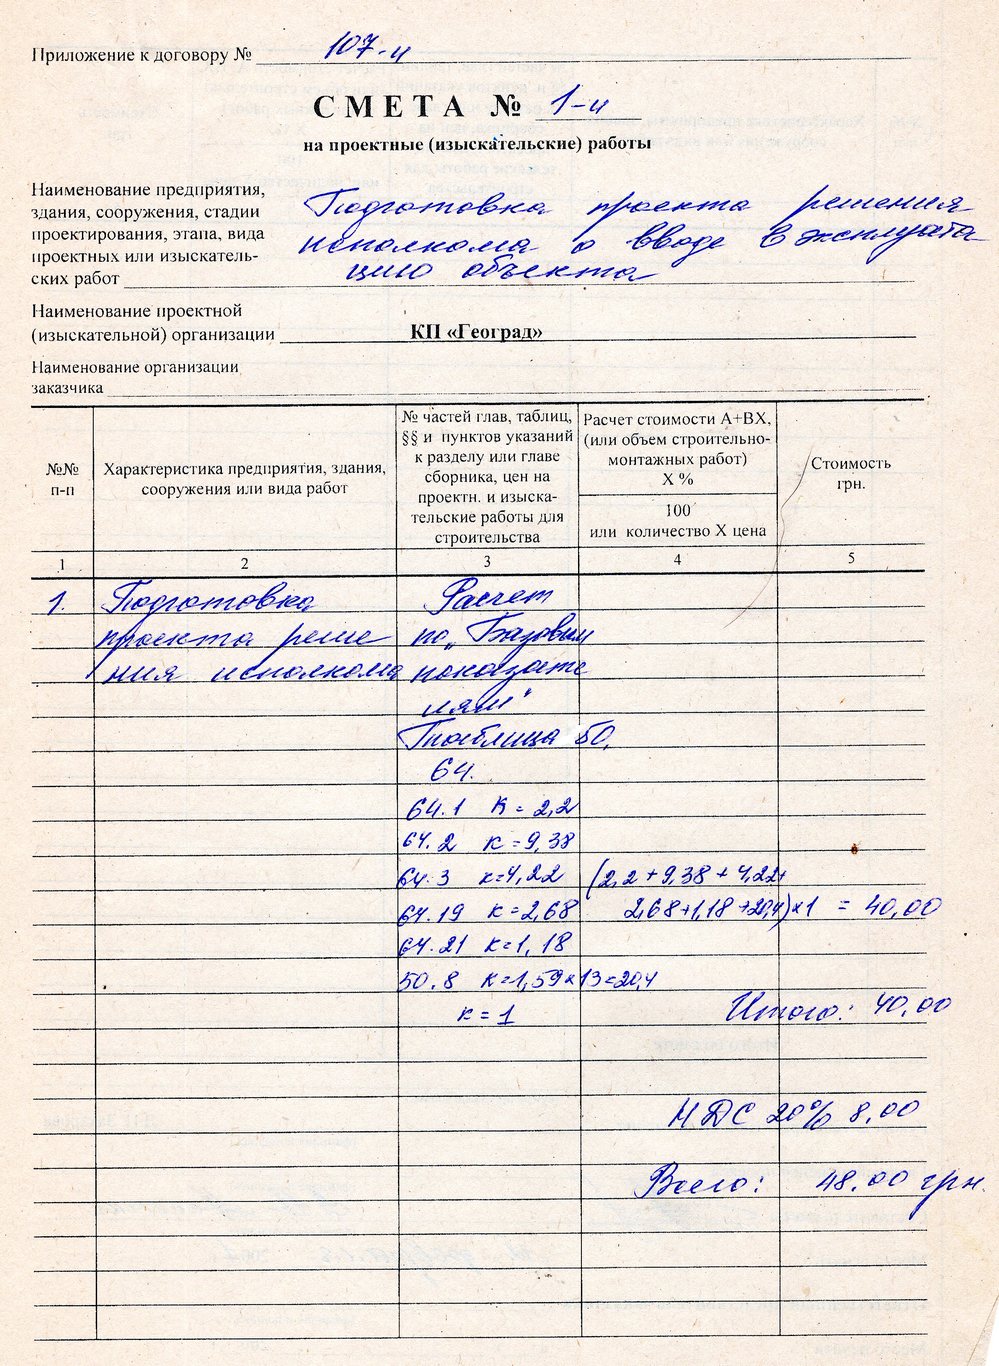 Приложение к договору № 107-и
СМЕТА № 1-и
на проектные (изыскательские) работы
Наименование предприятия,
здания, сооружения, стадии
проектирования, этапа, вида
проектных или изыскатель-
ских работ
Подготовка проекта решения
исполкома о вводе в эксплуата
цию объекта
Наименование проектной
(изыскательной) организации КП «Геоград»
Наименование организации
заказчика
№№
п-п
Характеристика предприятия, здания,
сооружения или вида работ
№ частей глав, таблиц,
§§ и пунктов указаний
к разделу или главе
сборника, цен на
проектн. и изыска-
тельские работы для
строительства
Расчет стоимости А+ВХ,
(или объем строительно-
монтажных работ)
Х %
100
или количество Х цена
Стоимость
грн.
1 2 3 4 5
1. Подготовка Расчет
проекта реше по „Базовым
ния исполкома показате
лям"
Таблица 50,
64.
64.1 к = 2,2
64.2 к = 9,38
64.3 к=4,22 (2,2 + 9,38 + 4,22+
64.19 к=2,68 2,68+1,18+20,4)х1 = 40,00
64.21 к=1,18
50.8 к=1,59х13=20,4
к = 1 Итого: 40,00
НДС 20% 8,00
Всего: 48,00 грн.